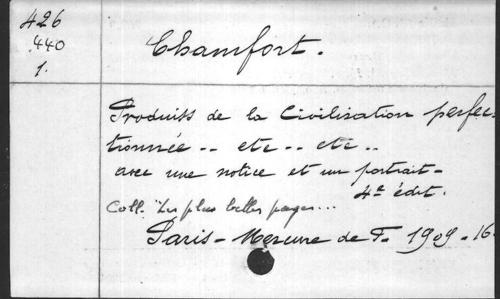 426
440
1.
Chamfort.
Produits de la Civilisation perfec-
tionnée -- etc -- etc --
avec une notice et un portrait -
4e édit.
Coll. "Les plus belles pages...
Paris - Mercure de F. 1909. - 16